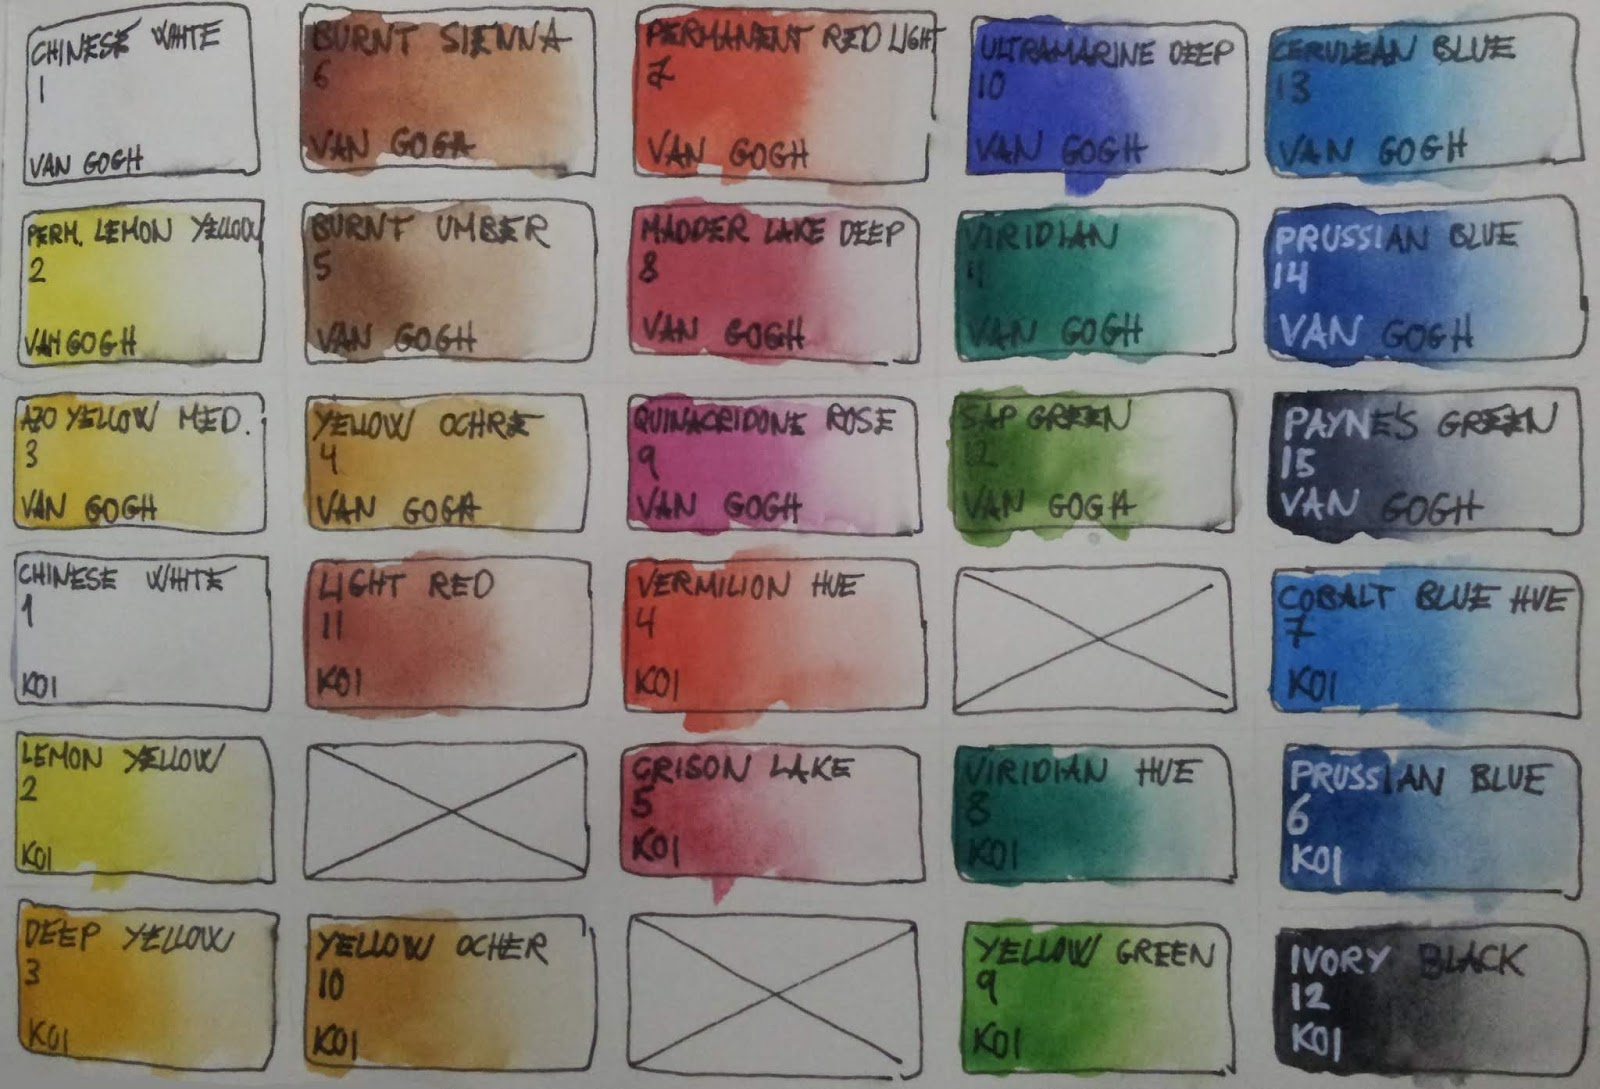 CHINESE WHITE
1
VAN GOGH
BURNT SIENNA
6
VAN GOGH
PERMANENT RED LIGHT
7
VAN GOGH
ULTRAMARINE DEEP
10
VAN GOGH
CERULEAN BLUE
13
VAN GOGH
PERM. LEMON YELLOW
2
VAN GOGH
BURNT UMBER
5
VAN GOGH
MADDER LAKE DEEP
8
VAN GOGH
VIRIDIAN
VAN GOGH
PRUSSIAN BLUE
14
VAN GOGH
AZO YELLOW MED.
3
VAN GOGH
YELLOW OCHRE
4
VAN GOGH
QUINACRIDONE ROSE
9
VAN GOGH
SAP GREEN
12
VAN GOGH
PAYNE'S GREEN
15
VAN GOGH
CHINESE WHITE
1
KOI
LIGHT RED
11
KOI
VERMILION HUE
4
KOI
COBALT BLUE HUE
7
KOI
LEMON YELLOW
2
KOI
CRISON LAKE
5
KOI
VIRIDIAN HUE
8
KOI
PRUSSIAN BLUE
6
KOI
DEEP YELLOW
3
KOI
YELLOW OCHER
10
KOI
YELLOW GREEN
9
KOI
IVORY BLACK
12
KOI